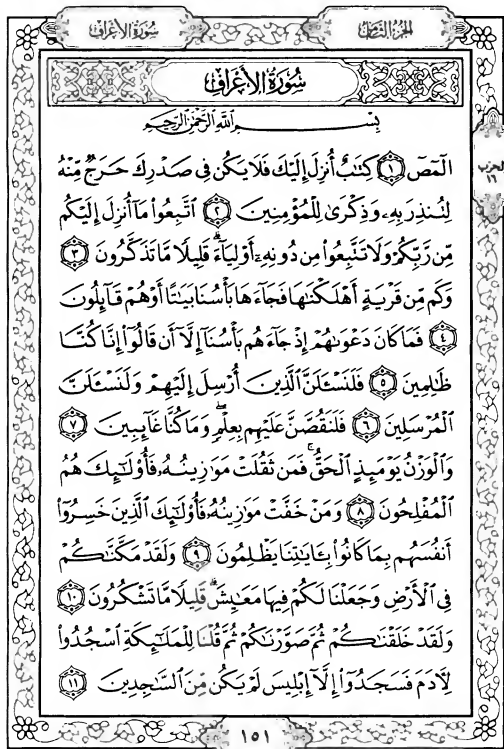 سُورَةُ الأَعْرَافِ الجُزْءُ الثَّامِنُ
سُورَةُ الأَعْرَافِ
بِسْمِ ٱللَّهِ ٱلرَّحْمَٰنِ ٱلرَّحِيمِ
الٓمٓصٓ ١ كِتَٰبٌ أُنزِلَ إِلَيْكَ فَلَا يَكُن فِى صَدْرِكَ حَرَجٌ مِّنْهُ
لِتُنذِرَ بِهِۦ وَذِكْرَىٰ لِلْمُؤْمِنِينَ ٢ ٱتَّبِعُوا۟ مَآ أُنزِلَ إِلَيْكُم
مِّن رَّبِّكُمْ وَلَا تَتَّبِعُوا۟ مِن دُونِهِۦٓ أَوْلِيَآءَ ۗ قَلِيلًا مَّا تَذَكَّرُونَ ٣
وَكَم مِّن قَرْيَةٍ أَهْلَكْنَٰهَا فَجَآءَهَا بَأْسُنَا بَيَٰتًا أَوْ هُمْ قَآئِلُونَ
٤ فَمَا كَانَ دَعْوَىٰهُمْ إِذْ جَآءَهُم بَأْسُنَآ إِلَّآ أَن قَالُوٓا۟ إِنَّا كُنَّا
ظَٰلِمِينَ ٥ فَلَنَسْـَٔلَنَّ ٱلَّذِينَ أُرْسِلَ إِلَيْهِمْ وَلَنَسْـَٔلَنَّ
ٱلْمُرْسَلِينَ ٦ فَلَنَقُصَّنَّ عَلَيْهِم بِعِلْمٍ ۖ وَمَا كُنَّا غَآئِبِينَ ٧
وَٱلْوَزْنُ يَوْمَئِذٍ ٱلْحَقُّ ۚ فَمَن ثَقُلَتْ مَوَٰزِينُهُۥ فَأُو۟لَٰٓئِكَ هُمُ
ٱلْمُفْلِحُونَ ٨ وَمَنْ خَفَّتْ مَوَٰزِينُهُۥ فَأُو۟لَٰٓئِكَ ٱلَّذِينَ خَسِرُوٓا۟
أَنفُسَهُم بِمَا كَانُوا۟ بِـَٔايَٰتِنَا يَظْلِمُونَ ٩ وَلَقَدْ مَكَّنَّٰكُمْ
فِى ٱلْأَرْضِ وَجَعَلْنَا لَكُمْ فِيهَا مَعَٰيِشَ ۗ قَلِيلًا مَّا تَشْكُرُونَ ١٠
وَلَقَدْ خَلَقْنَٰكُمْ ثُمَّ صَوَّرْنَٰكُمْ ثُمَّ قُلْنَا لِلْمَلَٰٓئِكَةِ ٱسْجُدُوا۟
لِـَٔادَمَ فَسَجَدُوٓا۟ إِلَّآ إِبْلِيسَ لَمْ يَكُن مِّنَ ٱلسَّٰجِدِينَ ١١
الحزب
١٦
١٥١